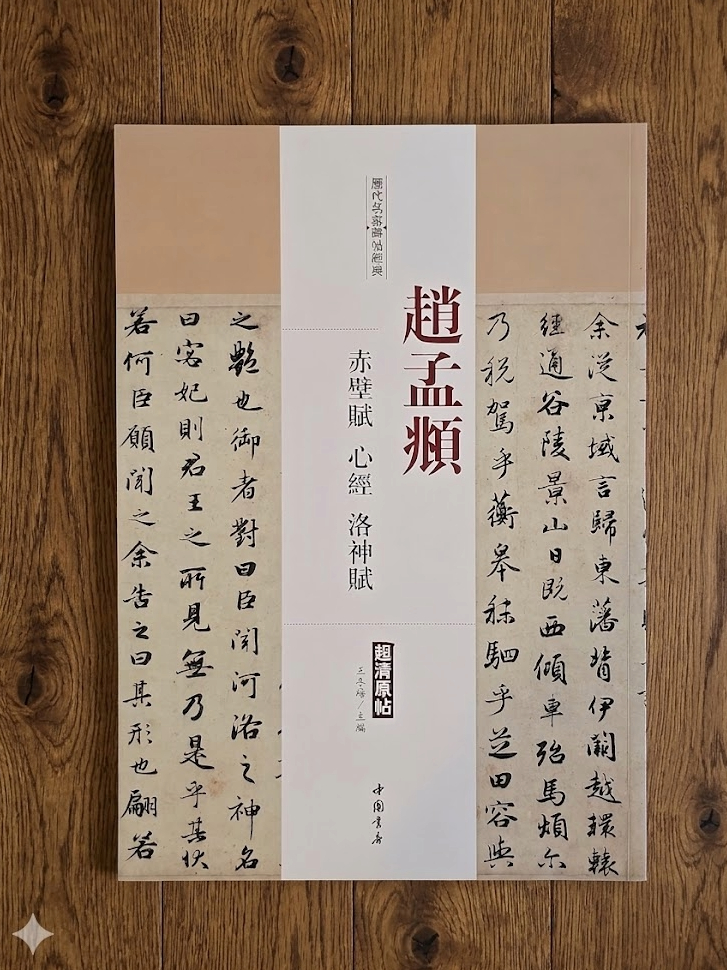 余從京域言歸東藩背伊闕越轘轅
經通谷陵景山日既西傾車殆馬煩尔
乃税駕乎蘅皋秣駟乎芝田容與
趙孟頫
赤壁賦 心經 洛神賦
超清原帖
王冬梅/主編
之艷也御者對曰臣聞河洛之神名
曰宓妃則君王之所見無乃是乎其狀
若何臣願聞之余告之曰其形也翩若